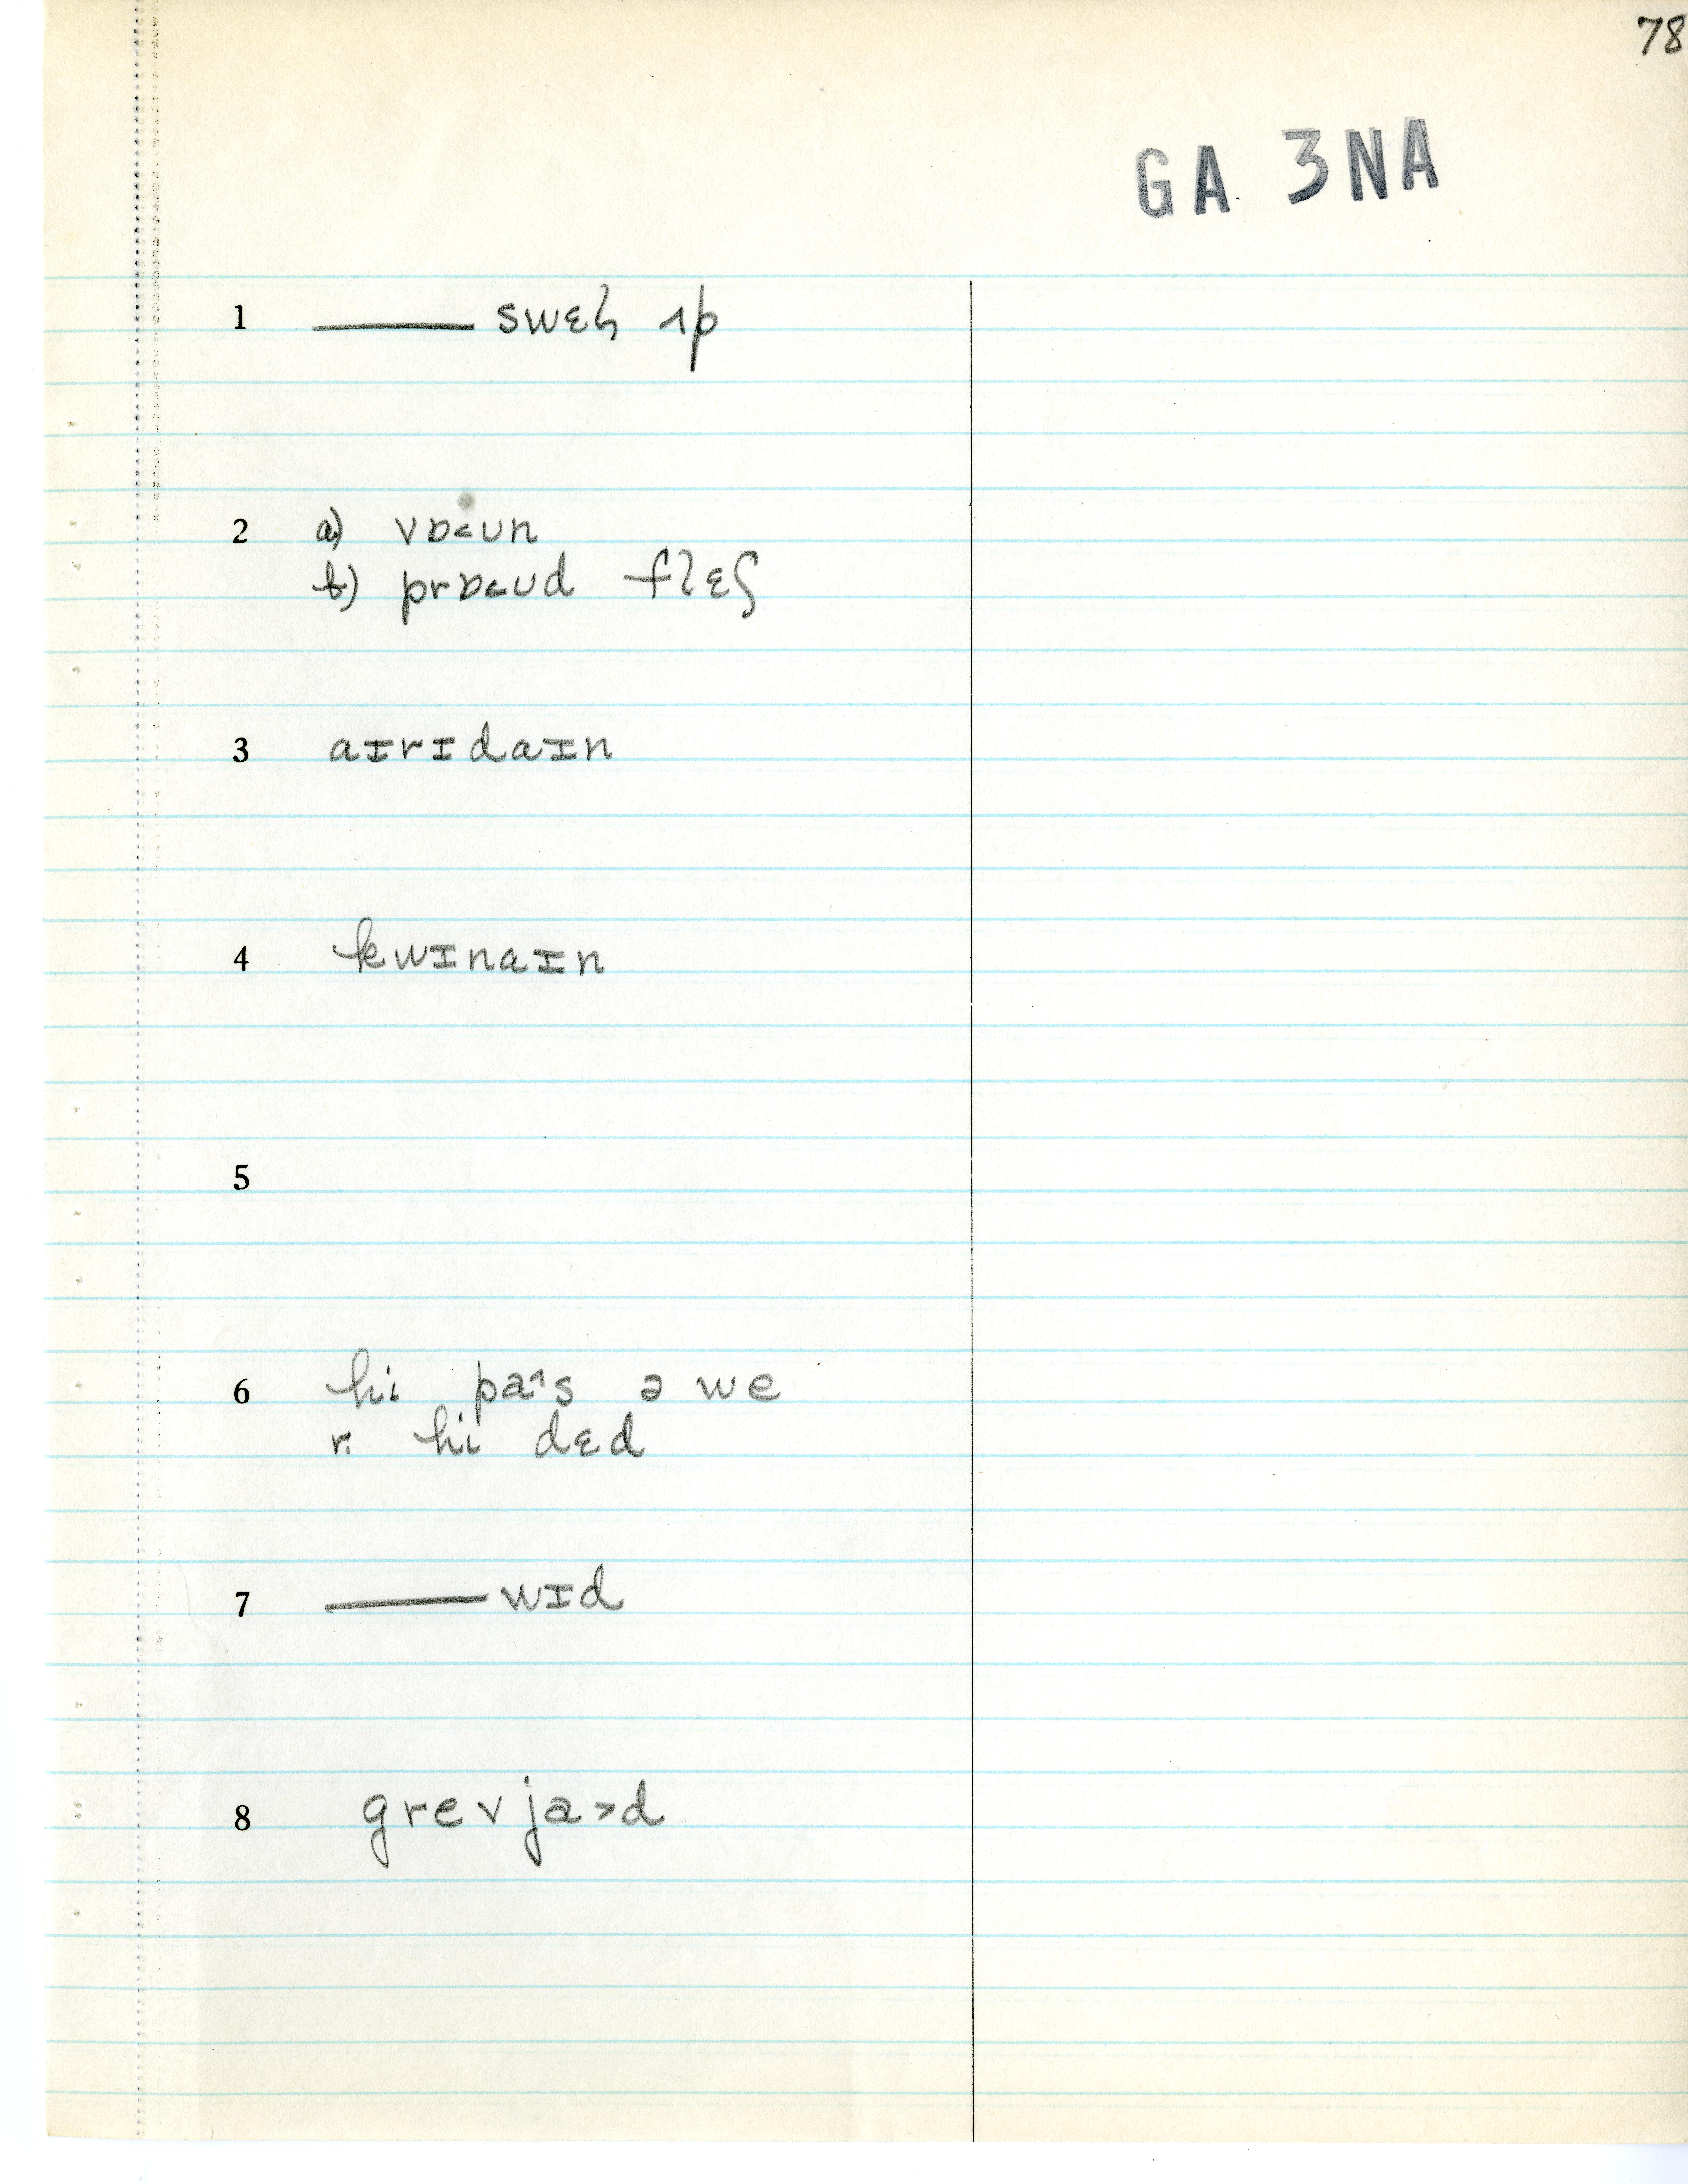 78
GA 3NA
1 ——— swɛɫ ʌp
2 a) vɒ˂ʊn
b) prɒ˂ʊd flɛʃ
3 aɪrɪdaɪn
4 kwɪnaɪn
5
6 hi pa˄s ə we
r. hi dɛd
7 ——— wɪd
8 grevja˃d